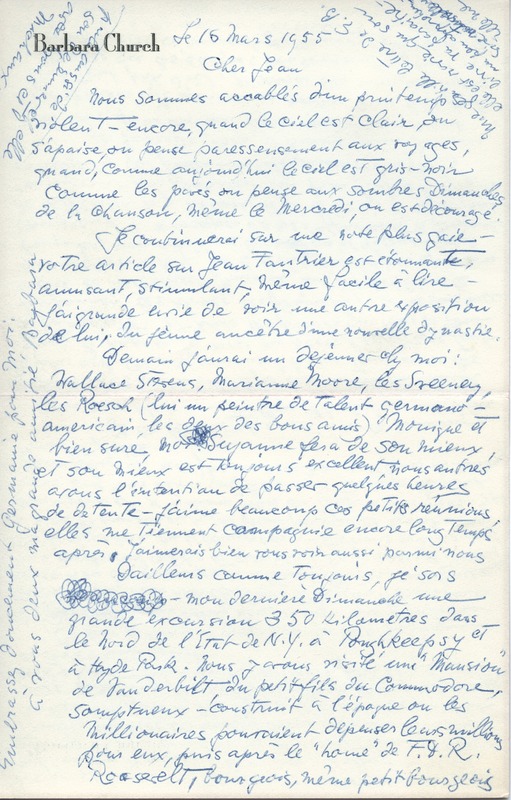 Barbara Church
Le 16 Mars 1955
Cher Jean
Nous sommes accablés d'un printemps
violent – encore, quand le ciel est clair, on
s'apaise, on pense paresseusement aux voyages,
quand, comme aujourd'hui le ciel est gris-noir
comme les pavés on pense aux sombres Dimanches
de la chanson, même le Mercredi, on est découragé.
Je continuerai sur une note plus gaie –
votre article sur Jean Fautrier est étonnante,
amusant, stimulant, même facile à lire –
j'ai grande envie de voir une autre exposition
de lui, du jeune ancêtre d'une nouvelle dynastie.
Demain j'aurai un déjeuner chez moi:
Wallace Stevens, Marianne Moore, les Sweeney,
les Roesch (lui un peintre de talent germano-
americain les deux des bons amis) Monique et
bien sure, moi Suzanne fera de son mieux,
et son mieux est toujours excellent nous autres
avons l'intention de passer quelques heures
de detente – j'aime beaucoup ces petits réunions,
elles me tiennent compagnie encore longtemps
après, j'aimerais bien vous voir aussi parmi nous
D'ailleurs comme toujours, je sors
– mon dernière Dimanche une
grande excursion 350 Kilometres dans
le Nord de l'Etat de N.Y. à Poughkeepsy et
à Hyde Park. Nous y avons visité une "Mansion"
de Vanderbilt du petit fils du Commodore,
somptueux – construit à l'époque ou les
Millionaires pouvaient dépenser leurs millions
pour eux, puis après le "home" de F.D.R.
Roosevelt, bourgeois, même petit bourgeois
Embrassez doucement Germaine pour moi.
à vous deux ma grande amitié, Barbara